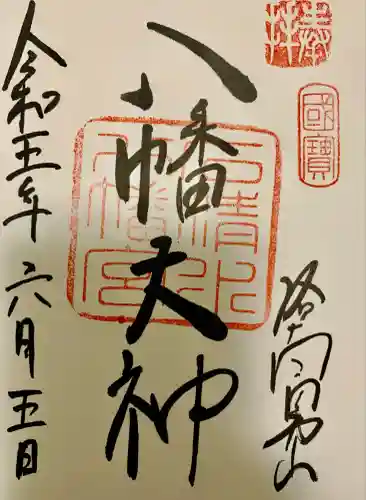 奉拝
國寶
洛南男山
八幡大神
石清水八幡宮
令和五年六月五日